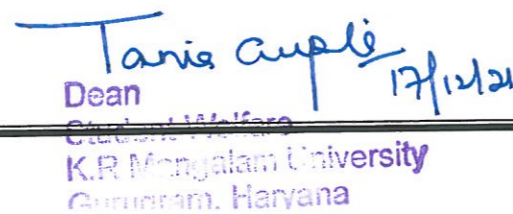 Tania Gupta
17/12/21
Dean
Student Welfare
K.R Mangalam University
Gurugram, Haryana